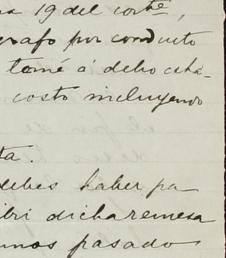 19 del corte,
grafo por conducto
tomé á dcho
costo incluyendo
ta.
debes haber pa
dicha remesa
pasado